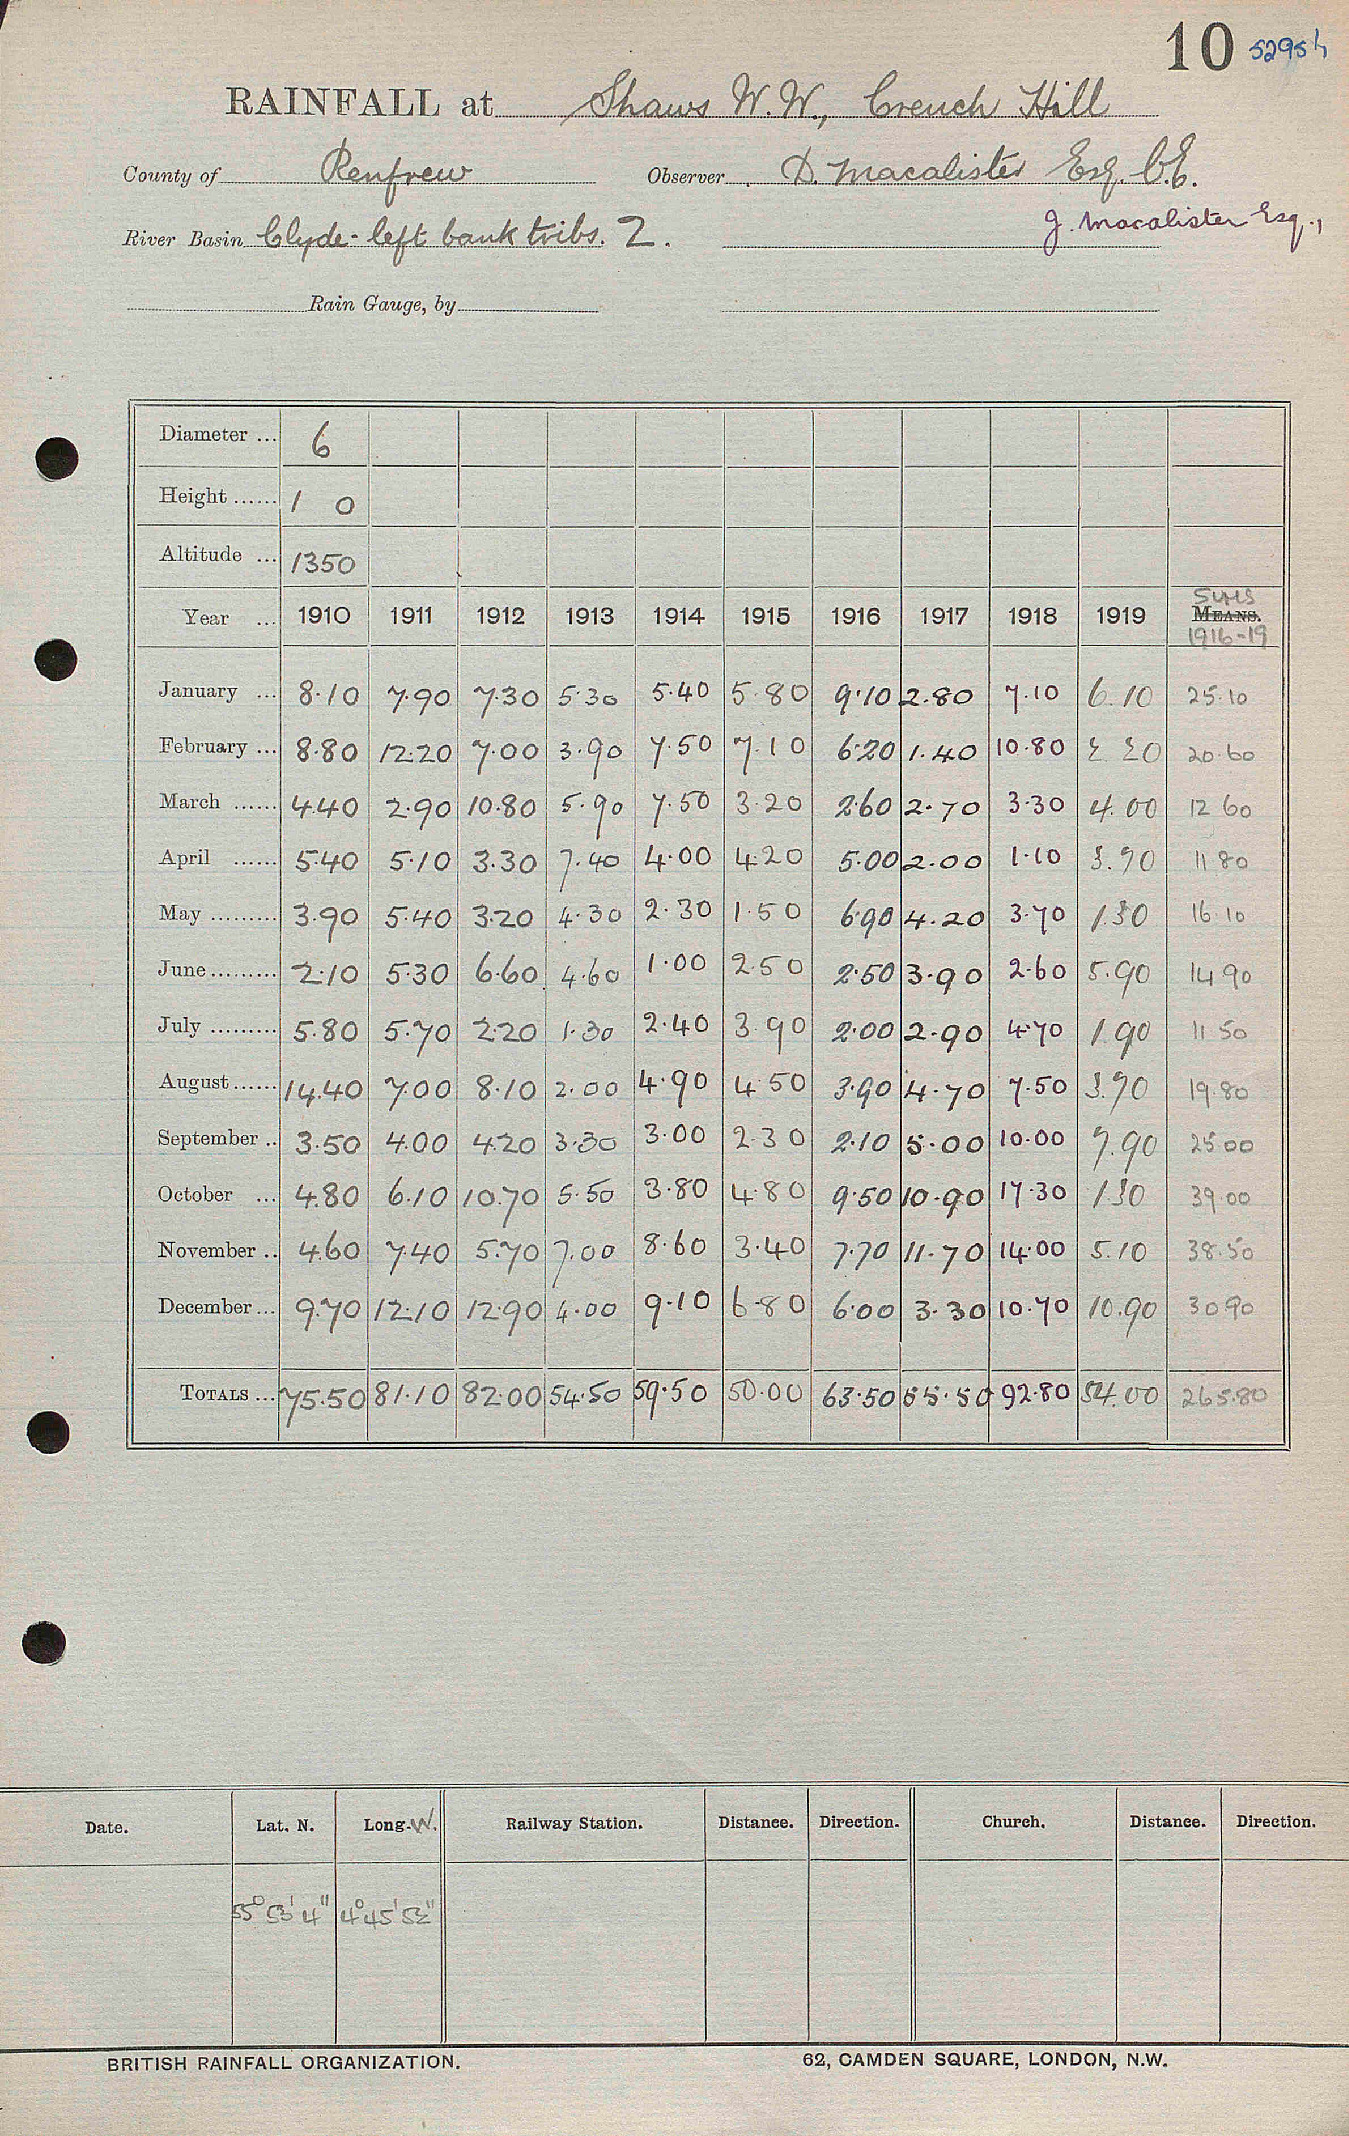 10 5295h
RAINFALL at Shaws W.W., Creuch Hill
County of Renfrew Observer D. Macalister Esq. C.E.
River Basin Clyde - left bank tribs. 2. J. Macalister Esq.,
Rain Gauge, by
Diameter ... 6
Height ...... 1 0
Altitude ... 1350
Year ... 1910 1911 1912 1913 1914 1915 1916 1917 1918 1919 SUMS MEANS. 1916-19
January ... 8.10 7.90 7.30 5.30 5.40 5.80 9.10 2.80 7.10 6.10 25.10
February ... 8.80 12.20 7.00 3.90 7.50 7.10 6.20 1.40 10.80 2.20 20.60
March ...... 4.40 2.90 10.80 5.90 7.50 3.20 2.60 2.70 3.30 4.00 12 60
April ...... 5.40 5.10 3.30 7.40 4.00 4.20 5.00 2.00 1.10 3.70 11 80
May ......... 3.90 5.40 3.20 4.30 2.30 1.50 6.90 4.20 3.70 1.30 16.10
June ......... 2.10 5.30 6.60 4.60 1.00 2.50 2.50 3.90 2.60 5.90 14 90
July ......... 5.80 5.70 2.20 1.30 2.40 3.90 2.00 2.90 4.70 1.90 11 50
August ...... 14.40 7.00 8.10 2.00 4.90 4.50 3.90 4.70 7.50 3.70 19.80
September .. 3.50 4.00 4.20 3.30 3.00 2.30 2.10 5.00 10.00 7.90 25 00
October ... 4.80 6.10 10.70 5.50 3.80 4.80 9.50 10.90 17.30 1.30 39.00
November .. 4.60 7.40 5.70 7.00 8.60 3.40 7.70 11.70 14.00 5.10 38.50
December ... 9.70 12.10 12.90 4.00 9.10 6.80 6.00 3.30 10.70 10.90 30 90
TOTALS ... 75.50 81.10 82.00 54.50 59.50 50.00 63.50 55.50 92.80 54.00 265.80
Date. Lat. N. Long. W. Railway Station. Distance. Direction. Church. Distance. Direction.
55° 53' 4" 4° 45' 52"
BRITISH RAINFALL ORGANIZATION. 62, CAMDEN SQUARE, LONDON, N.W.